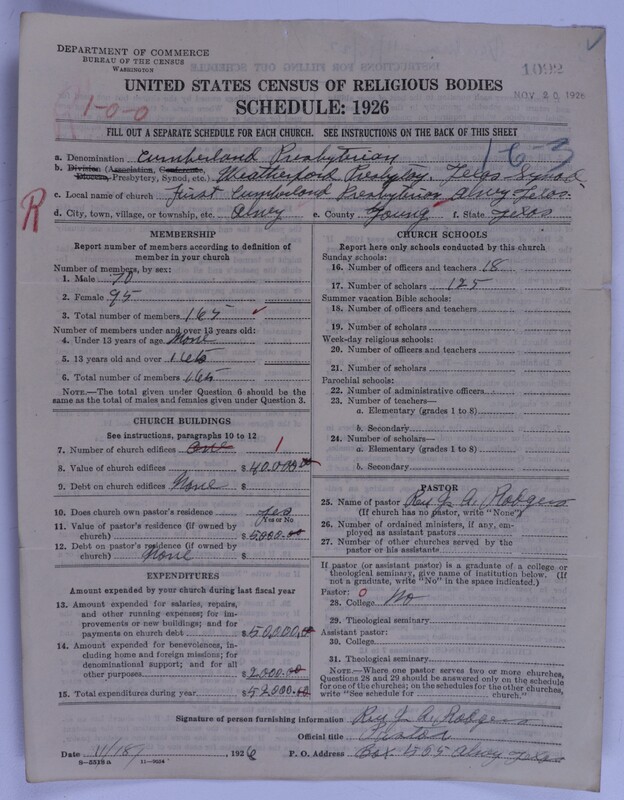 DEPARTMENT OF COMMERCE
BUREAU OF THE CENSUS
WASHINGTON
1092
NOV 26 1926
1-0-0
UNITED STATES CENSUS OF RELIGIOUS BODIES
SCHEDULE: 1926
FILL OUT A SEPARATE SCHEDULE FOR EACH CHURCH. SEE INSTRUCTIONS ON THE BACK OF THIS SHEET
16-3
a. Denomination Cumberland Presbyterian
b. Division (Association, Conference, Diocese, Presbytery, Synod, etc.) Weatherford Presbytery. Texas Synod
c. Local name of church First Cumberland Presbyterian Olney Texas.
R
d. City, town, village, or township, etc. Olney e. County Young f. State Texas
MEMBERSHIP
Report number of members according to definition of member in your church
Number of members, by sex:
1. Male 70
2. Female 95
3. Total number of members 165
Number of members under and over 13 years old:
4. Under 13 years of age None
5. 13 years old and over 165
6. Total number of members 165
NOTE.—The total given under Question 6 should be the same as the total of males and females given under Question 3.
CHURCH BUILDINGS
See instructions, paragraphs 10 to 12
7. Number of church edifices one 1
8. Value of church edifices $ 40,000.00
9. Debt on church edifices None $
10. Does church own pastor's residence yes
Yes or No
11. Value of pastor's residence (if owned by church) $ 5000.00
12. Debt on pastor's residence (if owned by church) None $
EXPENDITURES
Amount expended by your church during last fiscal year
13. Amount expended for salaries, repairs, and other running expenses; for improvements or new buildings; and for payments on church debt $ 50000.00
14. Amount expended for benevolences, including home and foreign missions; for denominational support; and for all other purposes $ 2000.00
15. Total expenditures during year $ 52000.00
CHURCH SCHOOLS
Report here only schools conducted by this church
Sunday schools:
16. Number of officers and teachers 18
17. Number of scholars 125
Summer vacation Bible schools:
18. Number of officers and teachers
19. Number of scholars
Week-day religious schools:
20. Number of officers and teachers
21. Number of scholars
Parochial schools:
22. Number of administrative officers
23. Number of teachers—
a. Elementary (grades 1 to 8)
b. Secondary
24. Number of scholars—
a. Elementary (grades 1 to 8)
b. Secondary
PASTOR
25. Name of pastor Rev J. A. Rodgers
(If church has no pastor, write "None")
26. Number of ordained ministers, if any, employed as assistant pastors
27. Number of other churches served by the pastor or his assistants
If pastor (or assistant pastor) is a graduate of a college or theological seminary, give name of institution below. (If not a graduate, write "No" in the space indicated.)
Pastor: 0
28. College No
29. Theological seminary
Assistant pastor:
30. College
31. Theological seminary
NOTE.—Where one pastor serves two or more churches, Questions 28 and 29 should be answered only on the schedule for one of the churches; on the schedules for the other churches, write "See schedule for church."
Signature of person furnishing information Rev J. A. Rodgers
Official title Pastor
Date 11/18/ 1926 P. O. Address Box 555 Olney Texas
8-5518a 11-9034